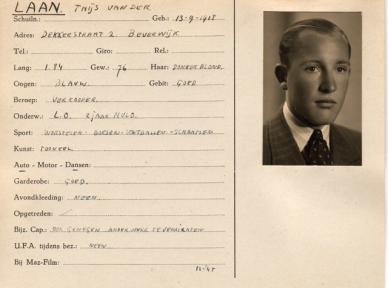 LAAN. THIJS VAN DER
Schuiln.: Geb.: 13-9-1918
Adres: DEKKERSTRAAT 2 BEVERWIJK
Tel.: Giro: Rel.:
Lang: 1.84 Gew.: 76 Haar: DONKER BLOND.
Oogen: BLAUW. Gebit: GOED
Beroep: VERKOOPER.
Onderw.: L.O. 2 JAAR MULO.
Sport: WORSTELEN - BOKSEN - VOETBALLEN - SCHAATSEN
Kunst: TOONEEL
Auto - Motor - Dansen:
Garderobe: GOED.
Avondkleeding: NEEN.
Opgetreden:
Bijz. Cap.:
U.F.A. tijdens bez.: NEEN
Bij Maz-Film: